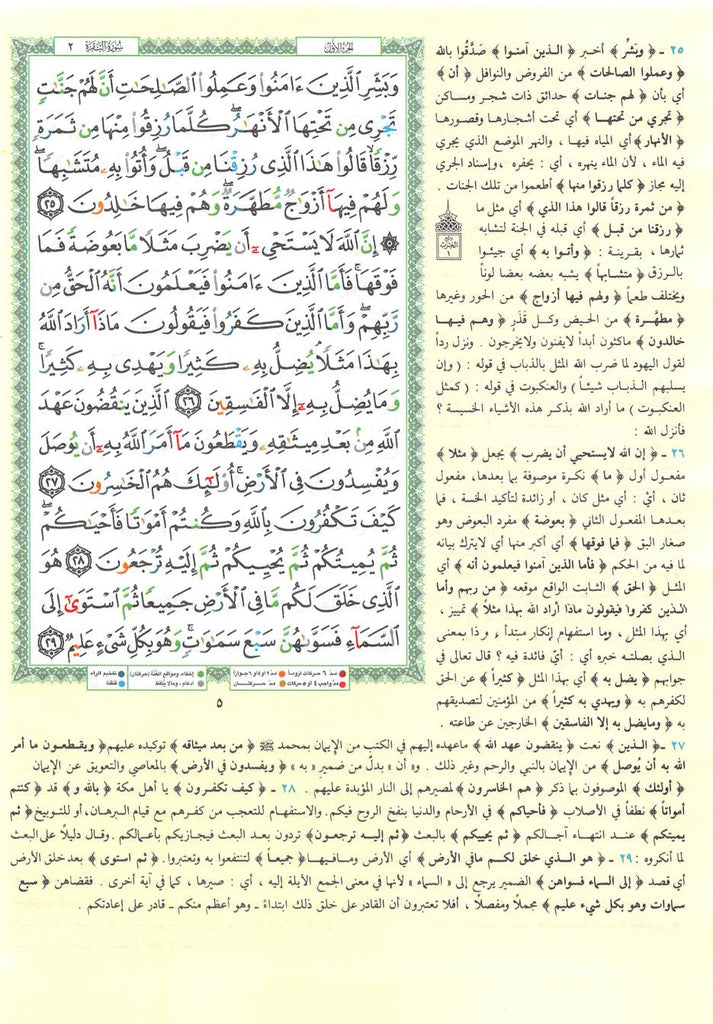 سورة البقرة ٢
الجزء الأول
وَبَشِّرِ الَّذِينَ ءَامَنُوا وَعَمِلُوا الصَّالِحَاتِ أَنَّ لَهُمْ جَنَّاتٍ
تَجْرِي مِن تَحْتِهَا الْأَنْهَارُ كُلَّمَا رُزِقُوا مِنْهَا مِن ثَمَرَةٍ
رِّزْقًا قَالُوا هَٰذَا الَّذِي رُزِقْنَا مِن قَبْلُ وَأُتُوا بِهِ مُتَشَابِهًا
وَلَهُمْ فِيهَا أَزْوَاجٌ مُّطَهَّرَةٌ وَهُمْ فِيهَا خَالِدُونَ ٢٥
۞ إِنَّ اللَّهَ لَا يَسْتَحْيِي أَن يَضْرِبَ مَثَلًا مَّا بَعُوضَةً فَمَا
فَوْقَهَا فَأَمَّا الَّذِينَ ءَامَنُوا فَيَعْلَمُونَ أَنَّهُ الْحَقُّ مِن
رَّبِّهِمْ وَأَمَّا الَّذِينَ كَفَرُوا فَيَقُولُونَ مَاذَا أَرَادَ اللَّهُ
بِهَٰذَا مَثَلًا يُضِلُّ بِهِ كَثِيرًا وَيَهْدِي بِهِ كَثِيرًا
وَمَا يُضِلُّ بِهِ إِلَّا الْفَاسِقِينَ ٢٦ الَّذِينَ يَنقُضُونَ عَهْدَ
اللَّهِ مِن بَعْدِ مِيثَاقِهِ وَيَقْطَعُونَ مَا أَمَرَ اللَّهُ بِهِ أَن يُوصَلَ
وَيُفْسِدُونَ فِي الْأَرْضِ أُولَٰئِكَ هُمُ الْخَاسِرُونَ ٢٧
كَيْفَ تَكْفُرُونَ بِاللَّهِ وَكُنتُمْ أَمْوَاتًا فَأَحْيَاكُمْ
ثُمَّ يُمِيتُكُمْ ثُمَّ يُحْيِيكُمْ ثُمَّ إِلَيْهِ تُرْجَعُونَ ٢٨ هُوَ
الَّذِي خَلَقَ لَكُم مَّا فِي الْأَرْضِ جَمِيعًا ثُمَّ اسْتَوَىٰ إِلَى
السَّمَاءِ فَسَوَّاهُنَّ سَبْعَ سَمَاوَاتٍ وَهُوَ بِكُلِّ شَيْءٍ عَلِيمٌ ٢٩
مدّ ٦ حركات لزوماً مدّ ٢ أو ٤ أو ٦ جوازاً إخفاء، ومواقع الغنة (حركتان) تفخيم الراء
مدّ واجب ٤ أو ٥ حركات مدّ حركتان إدغام، وما لا يلفظ قلقلة
٥
٢٥ ـ ﴿ وبَشِّر ﴾ أخبر ﴿ الذين آمنوا ﴾ صَدَّقُوا بالله
﴿ وعملوا الصالحات ﴾ من الفروض والنوافل ﴿ أن ﴾
أي بأن ﴿ لهم جنات ﴾ حدائق ذات شجر ومساكن
﴿ تجري من تحتها ﴾ أي تحت أشجارها وقصورها
﴿ الأنهار ﴾ أي المياه فيها ، والنهر الموضع الذي يجري
فيه الماء ، لأن الماء ينهره ، أي : يحفره ، وإسناد الجري
إليه مجاز ﴿ كلما رزقوا منها ﴾ أطعموا من تلك الجنات .
﴿ من ثمرة رزقاً قالوا هذا الذي ﴾ أي مثل ما
﴿ رزقنا من قبل ﴾ أي قبله في الجنة لتشابه
ثمارها ، بقرينة : ﴿ وأتوا به ﴾ أي جيئوا
بالرزق ﴿ متشابهاً ﴾ يشبه بعضه بعضا لوناً
ويختلف طعماً ﴿ ولهم فيها أزواج ﴾ من الحور وغيرها
﴿ مطهَّرة ﴾ من الحيض وكل قَذَرٍ ﴿ وهم فيها
خالدون ﴾ ماكثون أبداً لايفنون ولايخرجون . ونزل رداً
لقول اليهود لما ضرب الله المثل بالذباب في قوله : ( وإن
يسلبهم الذباب شيئاً ) والعنكبوت في قوله : ( كمثل
العنكبوت ) ما أراد الله بذكر هذه الأشياء الخسيسة ؟
فأنزل الله :
٢٦ ـ ﴿ إن الله لايستحيي أن يضرب ﴾ يجعل ﴿ مثلا ﴾
مفعول أول ﴿ ما ﴾ نكرة موصوفة بما بعدها، مفعول
ثان ، أيّ : أي مثل كان ، أو زائدة لتأكيد الخسة ، فما
بعدها المفعول الثاني ﴿ بعوضة ﴾ مفرد البعوض وهو
صغار البق ﴿ فما فوقها ﴾ أي أكبر منها أي لايترك بيانه
لما فيه من الحكم ﴿ فأما الذين آمنوا فيعلمون أنه ﴾ أي
المثل ﴿ الحق ﴾ الثابت الواقع موقعه ﴿ من ربهم وأما
الذين كفروا فيقولون ماذا أراد الله بهذا مثلاً ﴾ تمييز ،
أي بهذا المثل ، وما استفهام إنكار مبتدأ ، وذا بمعنى
الذي بصلته خبره أي : أيّ فائدة فيه ؟ قال تعالى في
جوابهم ﴿ يضل به ﴾ أي بهذا المثل ﴿ كثيراً ﴾ عن الحق
لكفرهم به ﴿ ويهدي به كثيراً ﴾ من المؤمنين لتصديقهم
به ﴿ ومايضل به إلا الفاسقين ﴾ الخارجين عن طاعته .
٢٧ ـ ﴿ الذين ﴾ نعت ﴿ ينقضون عهد الله ﴾ ماعهده إليهم في الكتب من الإيمان بمحمد ﷺ ﴿ من بعد ميثاقه ﴾ توكيده عليهم ﴿ ويقطعون ما أمر
الله به أن يُوصل ﴾ من الإيمان بالنبي والرحم وغير ذلك . و« أن » بدلٌ من ضمير « به » ﴿ ويفسدون في الأرض ﴾ بالمعاصي والتعويق عن الإيمان
﴿ أولئك ﴾ الموصوفون بما ذكر ﴿ هم الخاسرون ﴾ لمصيرهم إلى النار المؤبدة عليهم . ٢٨ ـ ﴿ كيف تكفرون ﴾ يا أهل مكة ﴿ بالله و ﴾ قد ﴿ كنتم
أمواتاً ﴾ نطفاً في الأصلاب ﴿ فأحياكم ﴾ في الأرحام والدنيا بنفخ الروح فيكم. والاستفهام للتعجب من كفرهم مع قيام البرهان، أو للتوبيخ ﴿ ثم
يميتكم ﴾ عند انتهاء آجالكم ﴿ ثم يحييكم ﴾ بالبعث ﴿ ثم إليه ترجعون ﴾ تردون بعد البعث فيجازيكم بأعمالكم . وقال دليلًا على البعث
لما أنكروه : ٢٩ ـ ﴿ هو الذي خلق لكم مافي الأرض ﴾ أي الأرض ومافيها ﴿ جميعاً ﴾ لتنتفعوا به وتعتبروا. ﴿ ثم استوى ﴾ بعد خلق الأرض
أي قصد ﴿ إلى السماء فسواهن ﴾ الضمير يرجع إلى « السماء » لأنها في معنى الجمع الآيلة إليه ، أي : صيرها ، كما في آية أخرى . فقضاهن ﴿ سبع
سماوات وهو بكل شيء عليم ﴾ مجملاً ومفصلاً ، أفلا تعتبرون أن القادر على خلق ذلك ابتداءً ـ وهو أعظم منكم ـ قادر على إعادتكم .